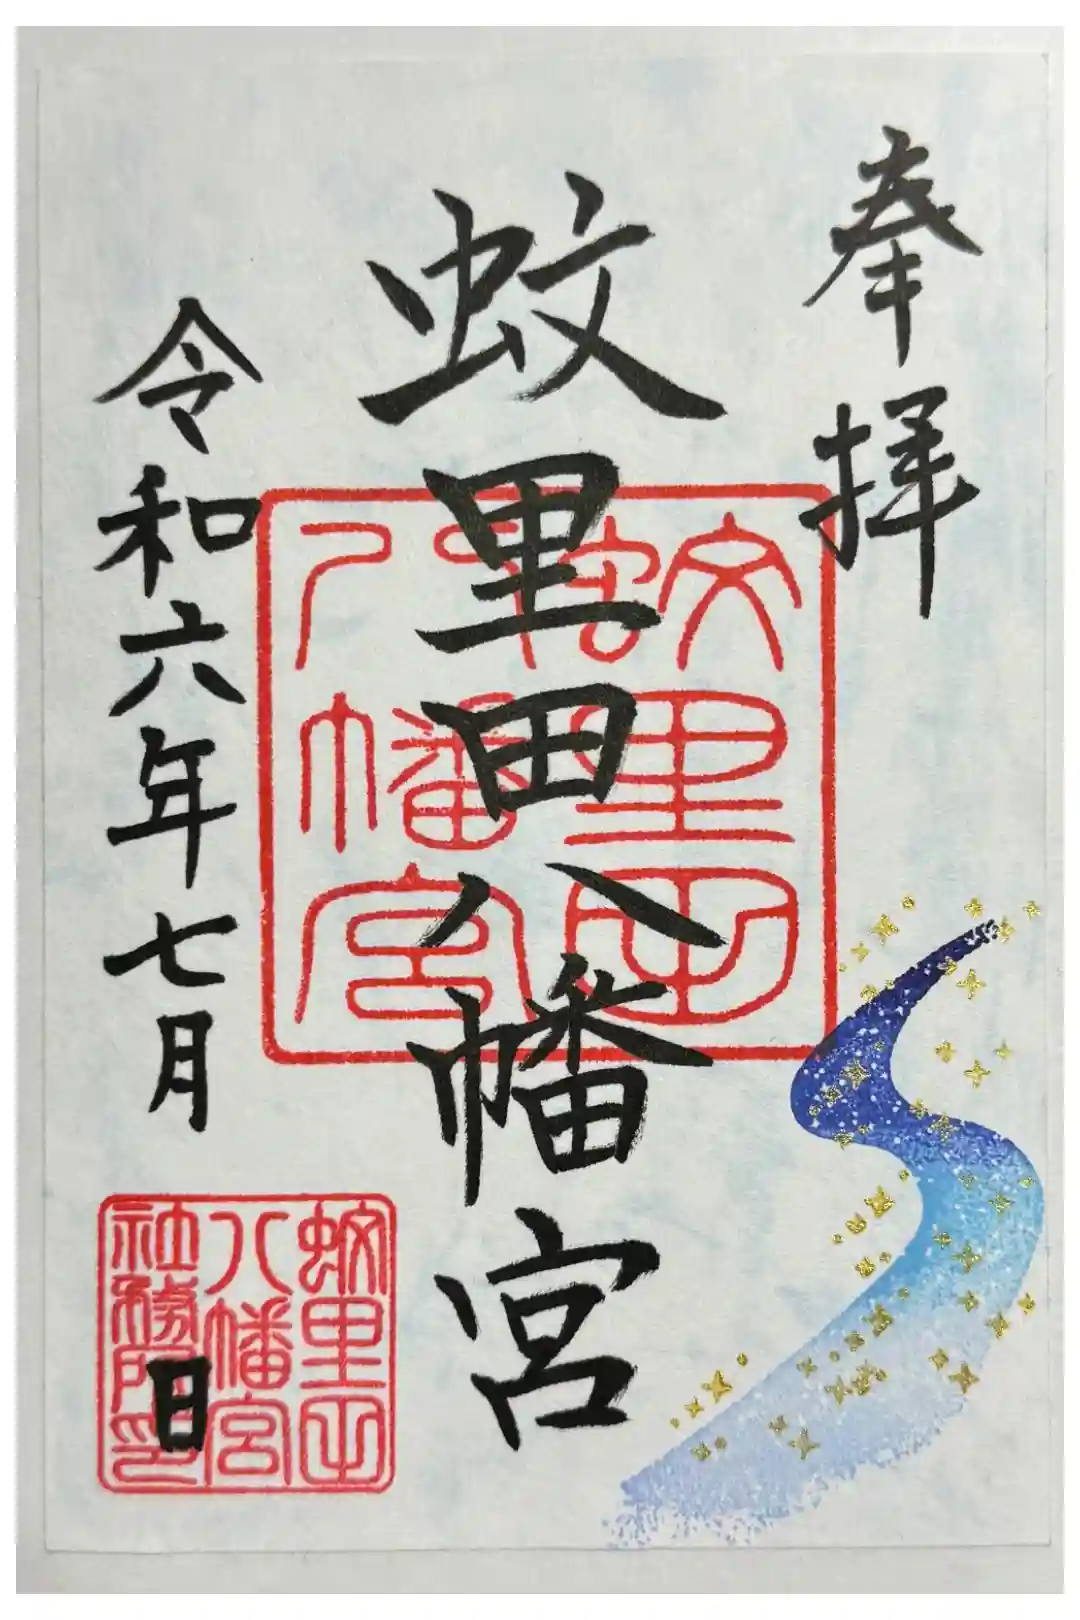 奉拝
蚊里田八幡宮
令和六年七月 日
蚊里田
八幡宮
蚊里田
八幡宮
社務所印